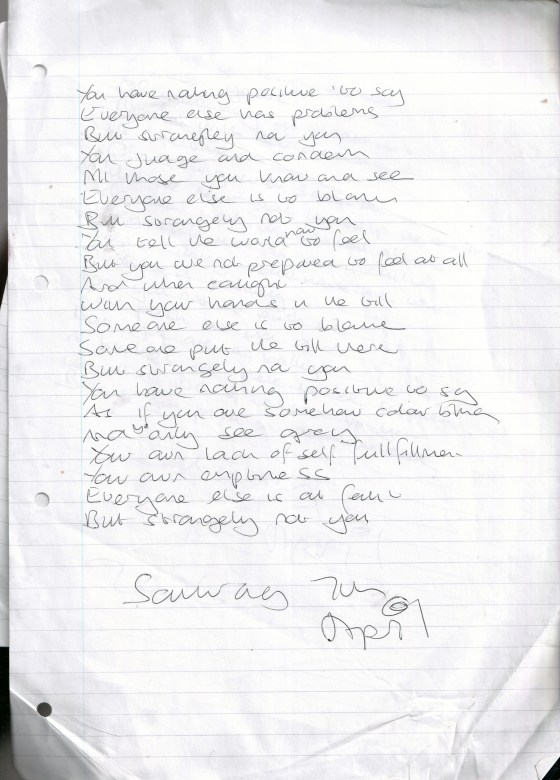 You have nothing positive to say
Everyone else has problems
But strangley not you
You judge and condem
All those you know and see
Everyone else is to blame
But strangely not you
You tell the world how to feel
But you are not prepared to feel at all
And when caught
With your hands in the till
Someone else is to blame
Someone put the till there
But strangely not you
You have nothing positive to say
As if you are somehow colour blind
and only see grey
Your own lack of self fullfillment
Your own emptiness
Everyone else is at fault
But strangely not you
Saturday 7th
April